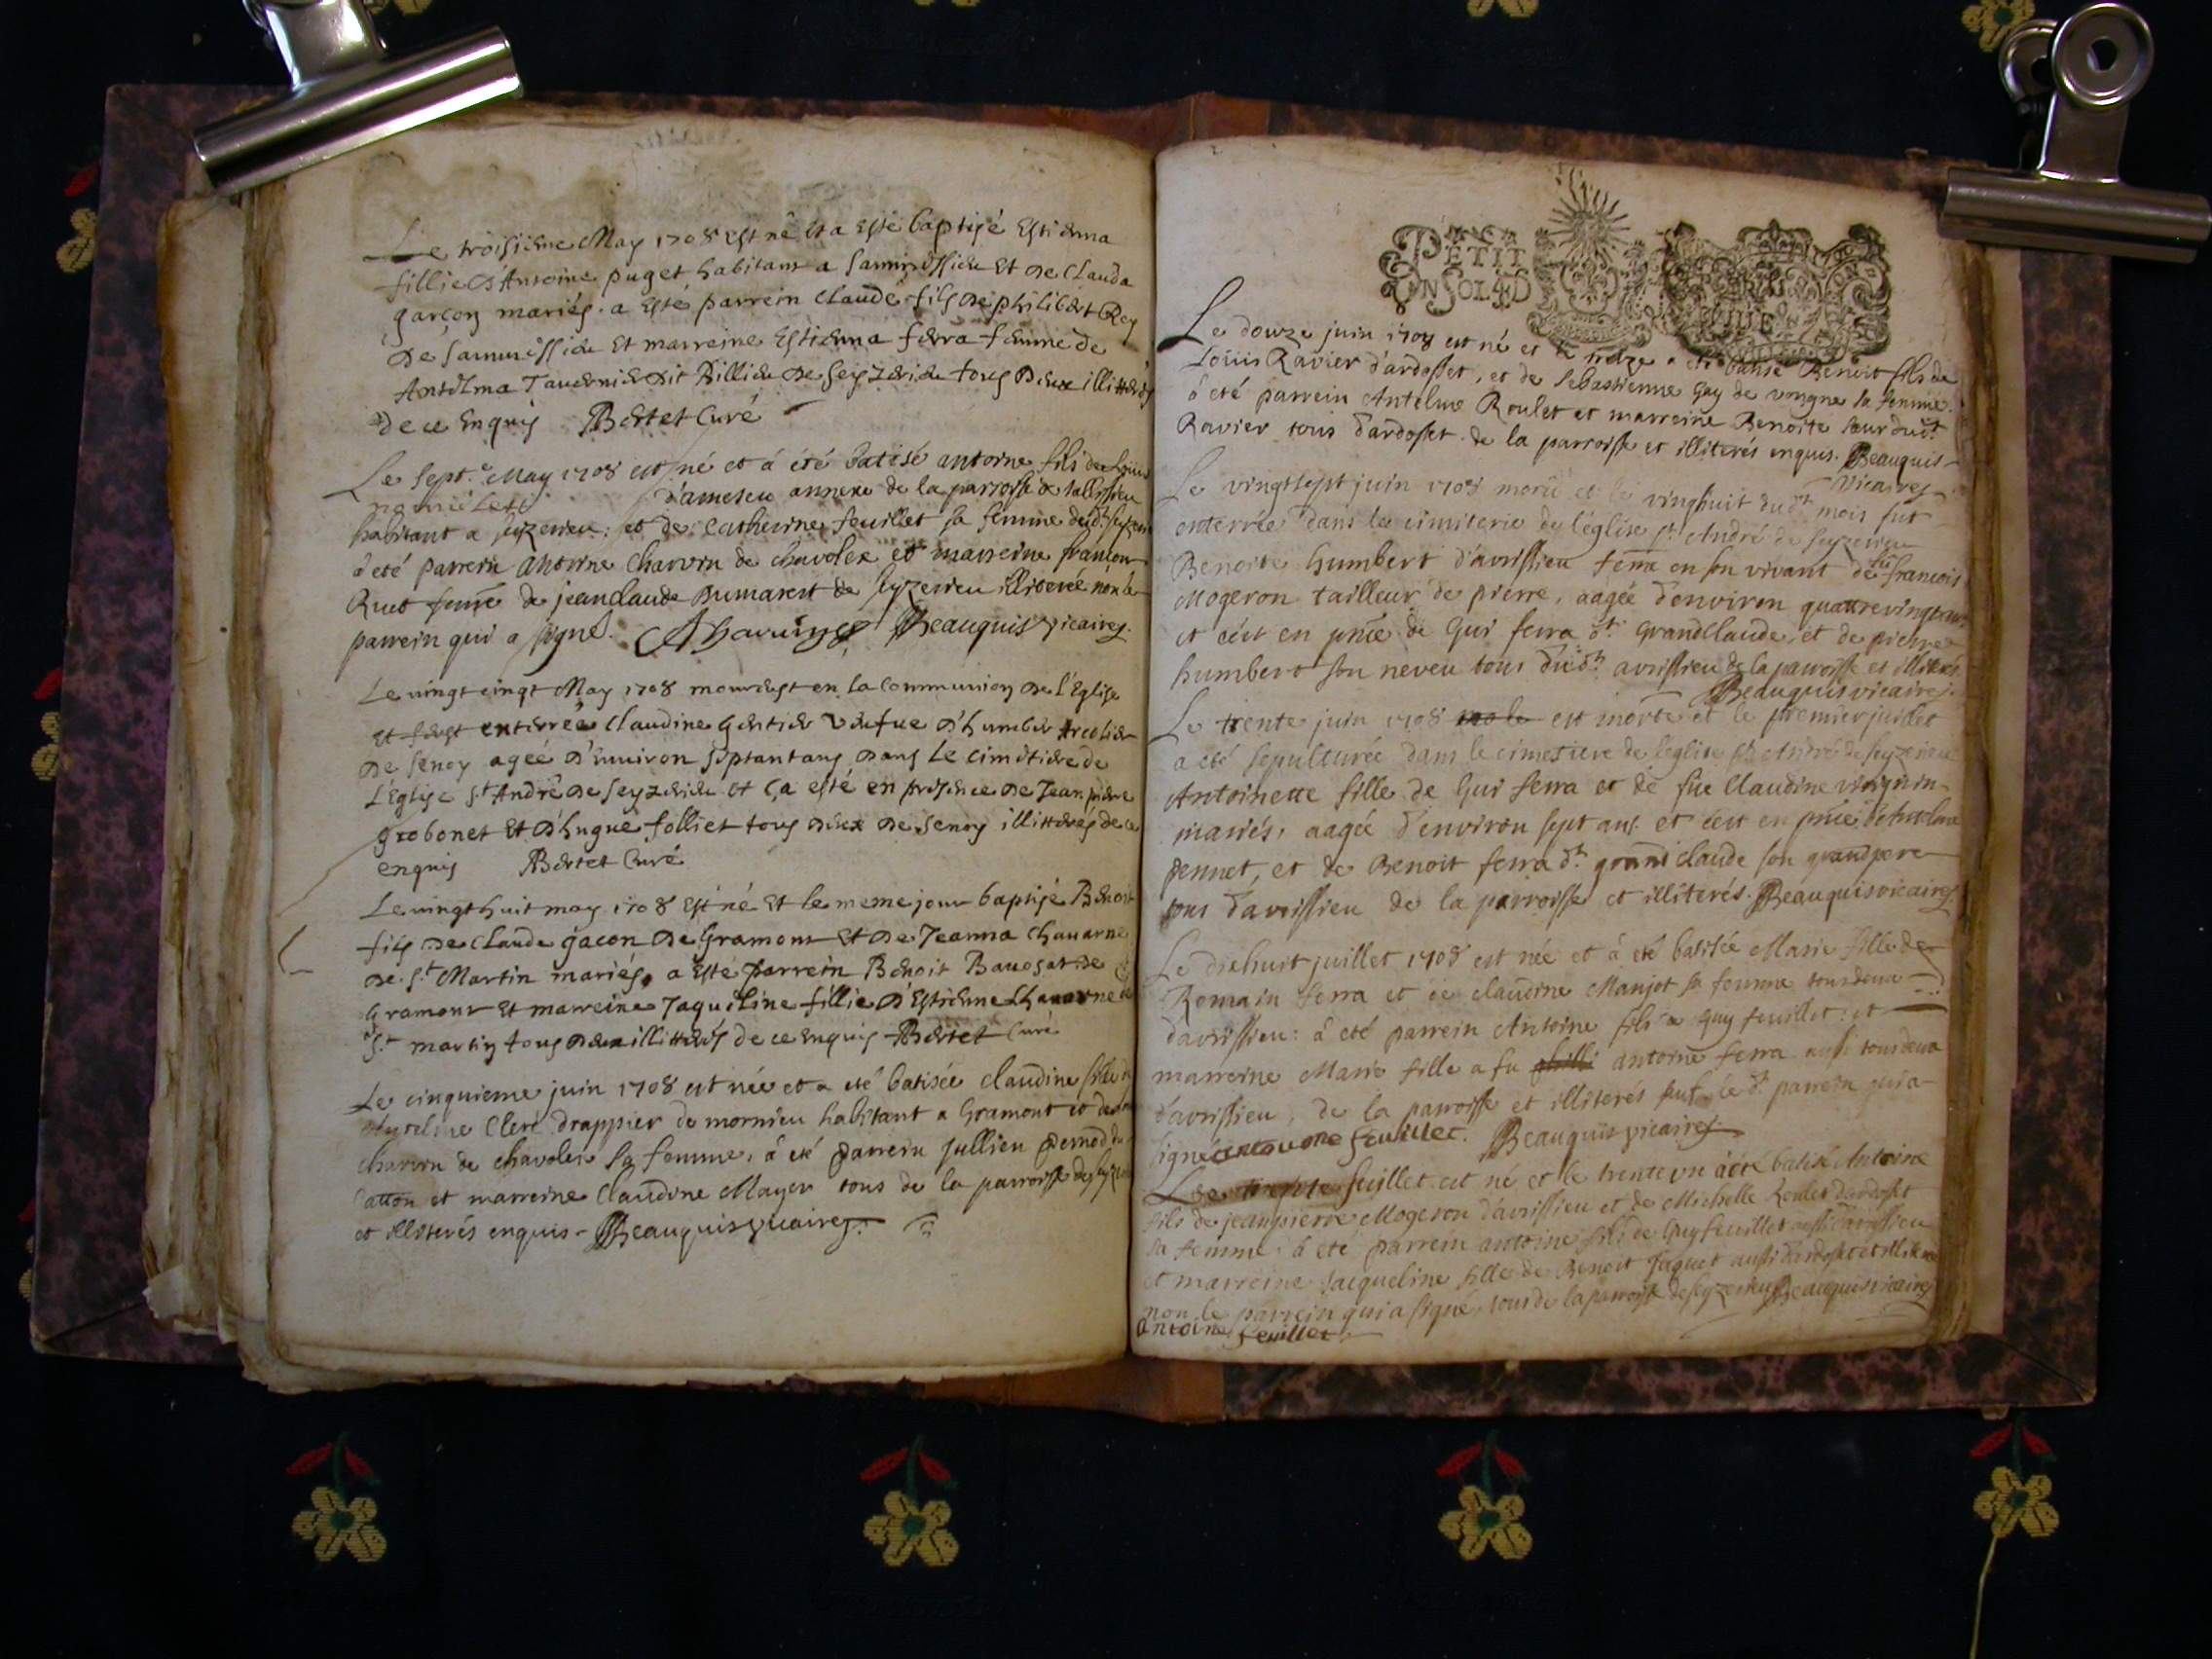 Le troisieme May 1708 Est né Et a Esté baptisé Estienna
fillie d'Antoine puget habitant a Et de Clauda
garçon mariés. a Esté parrein Claude fils de philibert Rey
de Et marreine Estienna ferra femme de
Antelma Tavernier dit Billiet de Seyzerieu tous deux illitterés
de ce Enquis Bertet Curé
Le Sept.e May 1708 est né et á été batisé antoine fils de Loüis
d'ameseu annexe de la parroisse de
habitant a seyzerieu: et de Catherine feuillet sa femme
á eté parrein antoine Charvin de chavolex et marreine
Ruet feme de jeanclaude Dumarest de seyzerieu illiteré non le
parrein qui a signé. ACharvin Beauquis vicaire
Le vingt cinqt May 1708 mourust en la Communion de l'Eglise
et fust enterreé Claudine vefue d'humber
de Senoy ageé d'Environ septant ans dans Le cimetiere de
L'Eglise St André de Seyzerieu et ça esté en presence de Jean pierre
grobonet Et d'hugue folliet tous deux de Senoy illitterés de ce
enquis Bertet Curé
Le vingt huit may 1708 Est né Et le meme jour baptisé Benoit
fils de Claude gacon de Gramont Et de Jeanna Chavarne
de St Martin mariés, a Esté parrein Benoit de
Gramont Et marreine Jaqueline fillie d'Estienne Chavarne
St martin tous deux illitterés de ce enquis Bertet Curé
Le cinquieme juin 1708 est née et a eté batisée claudine fille
Clerc drappier de mornieu habitant a Gramont et de
charvin de chavolex sa femme, á eté parrein jullien
et marreine Claudine Mayer tous de la parroisse de
et illiterés enquis - Beauquis vicaire
PETIT
UN SOL 4 D
Le douze juin 1708 est né et le treize a eté batisé Benoit fils de
Loüis Ravier d'ardosset, et de Sebastienne Gay de vongne sa femme.
á eté parrein Antelme Roulet et marreine Benoite sœur dudt
Ravier tous d'ardosset de la parroisse et illiterés enquis. Beauquis
vicaire
Le vingtsept juin 1708 et le vinghuit dudt mois fut
enterrée dans le cimiterie de l'église st André de seyzerieu
Benoite humbert d'avrissieu feme en son vivant de feu francois
Mogeron tailleur de pierre, aagée d'environ quattrevingt ans
et c'est en pnce de Gui ferra dt Grandclaude, et de pierre
humbert son neveu tous dudt avrissieu de la parroisse et illiterés
Beauquis vicaire
Le trente juin 1708 est morte et le premier juillet
a eté sepulturée dans le cimetiere de l'eglise st André de seyzerieu
Antoinette fille de Gui ferra et de fue Claudine
mariés, aagée d'environ sept ans. et c'est en pnce d'Antelme
pennet, et de Benoit ferra dt grand claude son grandpere
tous d'avrissieu de la parroisse et illiterés. Beauquis vicaire
Le diehuit juillet 1708 est née et á eté batisée Marie fille de
Romain ferra et de claudine Manjot sa femme tousdeux
d'avrissieu: á eté parrein Antoine fils a Guy feuillet: et
marreine Marie fille a fu antoine ferra aussi tousdeux
d'avrissieu, de la parroisse et illiterés le dt parrein qui a
signé antoine feuillet. Beauquis vicaire
Le juillet est né et le trente un a eté batisé Antoine
fils de jeanpierre Mogeron d'avrissieu et de Michelle Roulet d'ardosset
sa femme: á eté parrein antoine fils de Guy feuillet aussi d'avrissieu
et marreine Jacqueline fille de Benoit Jaquet aussi d'ardosset et illiterés
non le parrein qui a signé, tous de la parroisse de seyzerieu Beauquis vicaire
antoine feuillet